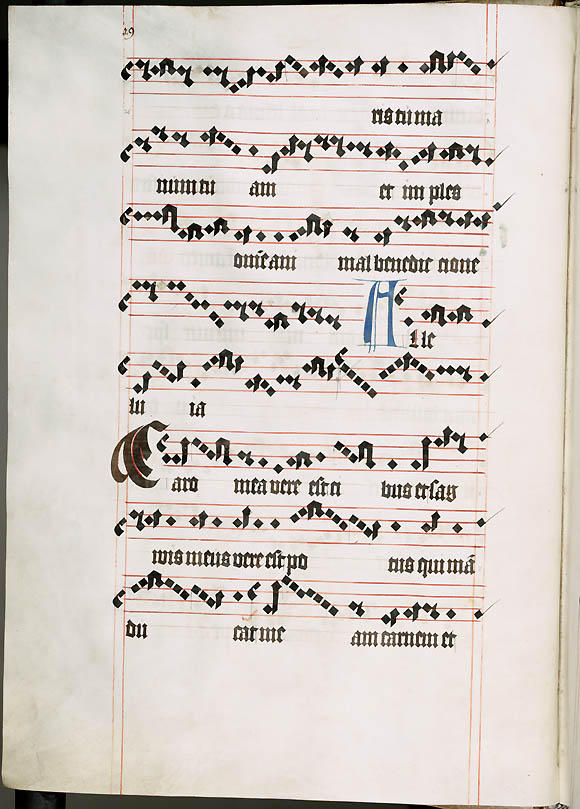 29
tis tu ma
num tu am et im ples
om̄e am mal benedic tione
A lle
lu ia
Caro mea vere est ci bus et sag
wis meus vere est po tus qui mā
du cat me am carnem et